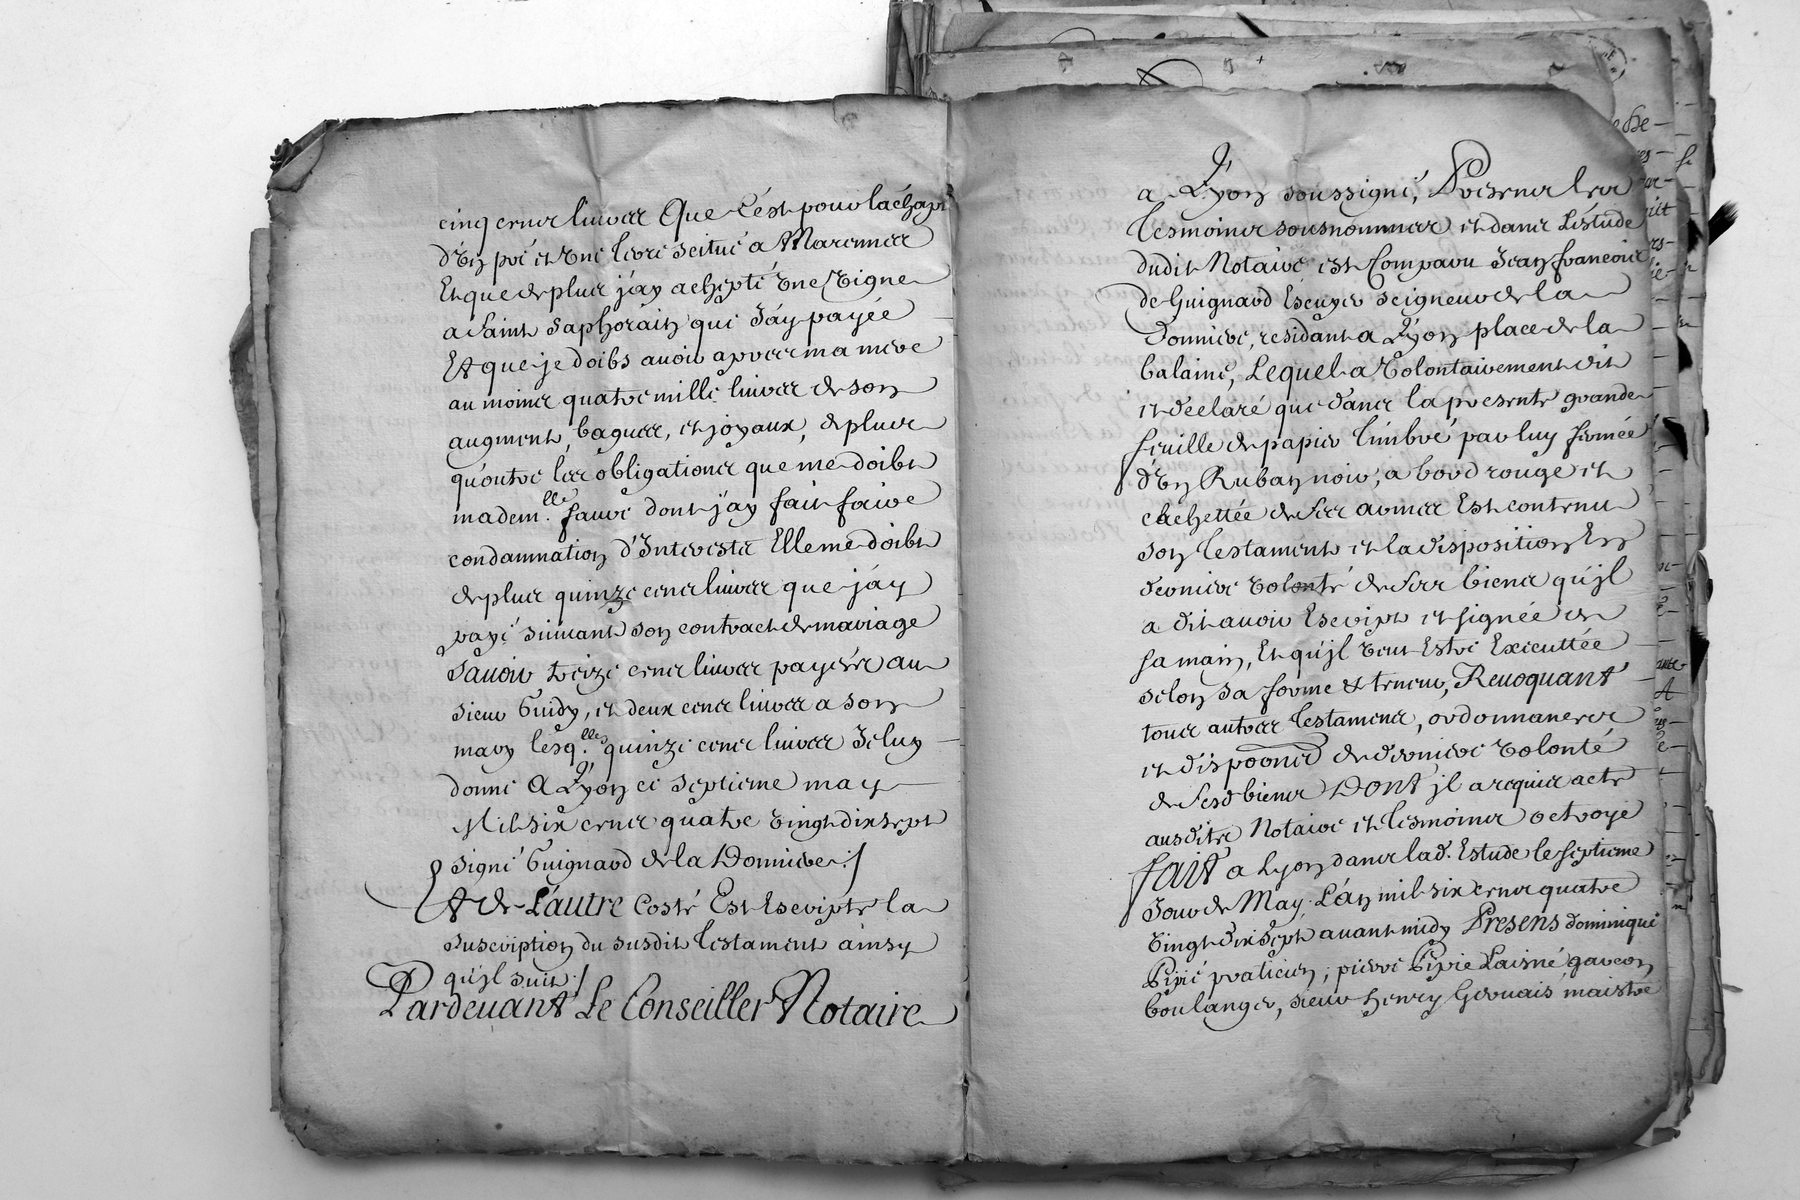 cinq cens livres Que c'est pour l'achapt
d'Un pré et Une terre scitué a Marennes
Et que de plus j'ay achepté Une Vigne
a Saint Saphorain que J'ay payée
Et que je doibs avoir apres ma mere
au moins quatre mille livres de son
augment, bagues, et joyaux, de plus
qu'outre les obligations que me doibt
madem.lle faure dont j'ay fait faire
condamnation d'Interests Elle me doibt
de plus quinze cens livres que j'ay
payé suivant son contract de mariage
Savoir treize cens livres payées au
sieur Guidy, et deux cens livres a son
mary lesq.lles quinze cens livres Je luy
donne A Lyon ce septieme may
Mil six cens quatre vingt dix sept
signé Guignard de la Donniere ./
Et de L'autre Costé Est Escripte la
Suscription du susdit Testament ainsy
qu'jl suit ./
Pardevant Le Conseiller Notaire
a Lyon soussigné, Presens les
Tesmoins sousnommes et dans L'estude
dudit Notaire est Comparu Jean francois
de Guignard Escuyer seigneur de la
Donniere, residant a Lyon place de la
balaine, Lequel a Volontairement dit
et declaré que dans la presente grande
feuille de papier timbré par luy fermée
d'Un Ruban noir, a bord rouge et
cachettée de ses armes Est contenu
son Testament et la disposition En
derniere volonté de ses biens qu'jl
a dit avoir Escript et signée de
sa main, Et qu'jl veut Estre Executtée
selon sa forme & teneur, Revoquant
tous autres Testamens, ordonnances
et disponed de derniere Volonté
de sesd biens Dont jl a requis acte
ausdits Notaire et Tesmoins octroyé
fait a Lyon dans lad. Estude le septieme
Jour de May L'an mil six cens quatre
vingt dix Sept avant midy Presens Dominique
Pipié praticien, pierre Pipié Laisné garcon
boulanger, sieur henry Gervais maistre